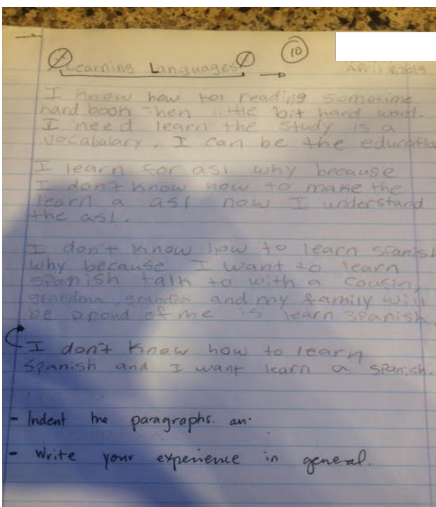 10
Learning Languages
April 8 2019
I know how to reading sometime
hard book then little bit hard word.
I need learn the study is a
vocabulary. I can be the educatio
I learn for asl why because
I don't know how to make the
learn a asl now I understand
the asl.
I don't know how to learn spanish
why because I want to learn
spanish talk to with a cousin,
grandma, grandpa and my family will
be proud of me is learn spanish
I don't know how to learn
spanish and I want learn a spanish.
- Indent the paragraphs.
- Write your experience in general.